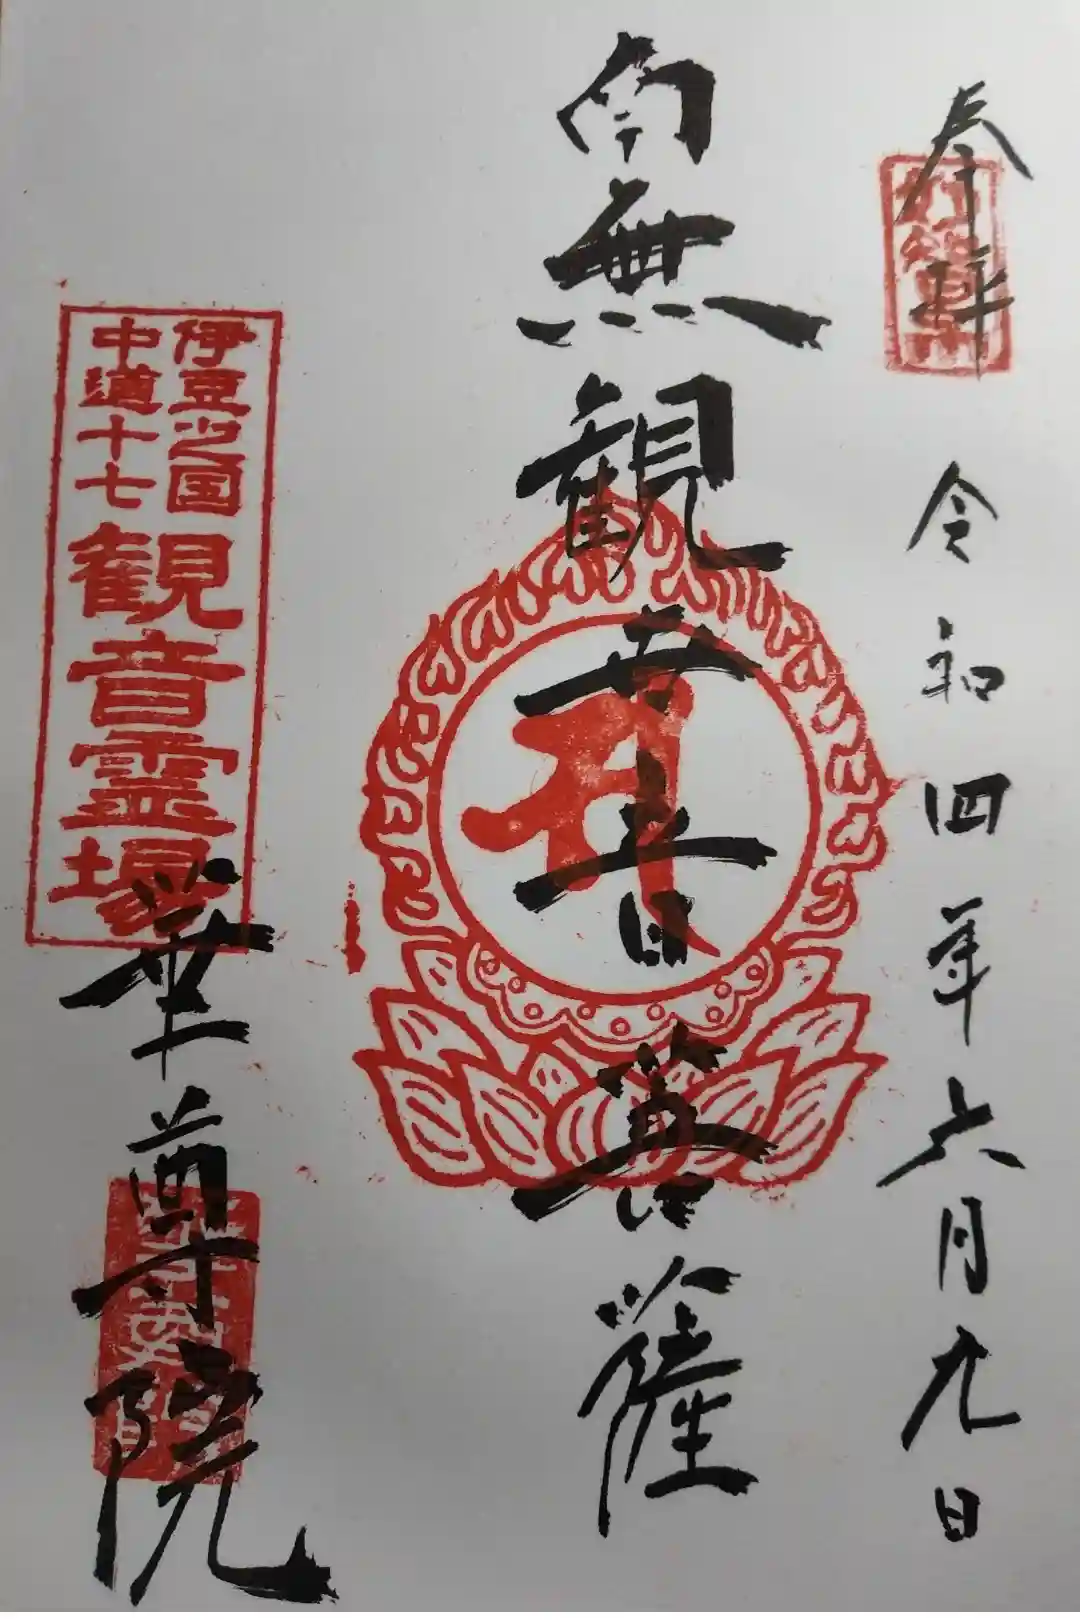 奉拝
令和四年六月九日
南無観世音菩薩
伊豆之国
中道十七
観音霊場
華尊院